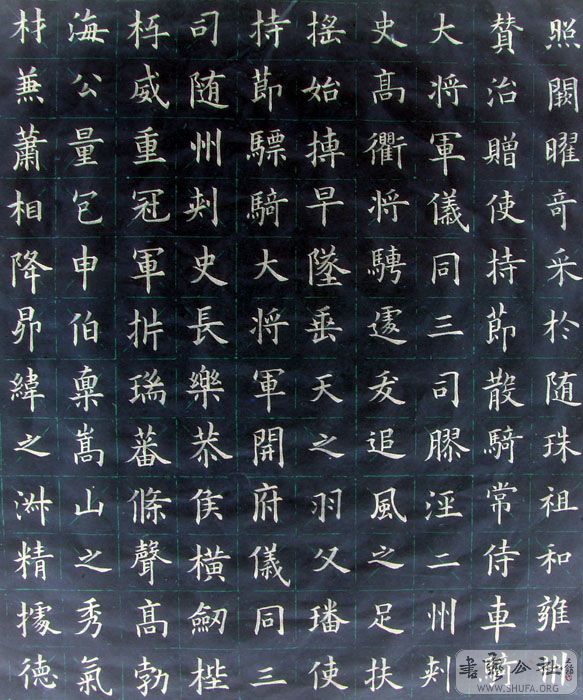 照闕曜奇采於随珠祖和雍州
贊治贈使持節散騎常侍車騎
大将軍儀同三司膠涇二州刾
史高衢将騁遽追風之足扶
摇始摶早墜垂天之羽父璠使
持節驃騎大将軍開府儀同三
司随州刾史長樂恭侯橫劒梐
枑威重冠軍析瑞蕃條聲高勃
海公量包申伯稟嵩山之秀氣
材兼蕭相降昴緯之淑精據德
書藝公社
WWW.SHUFA.ORG